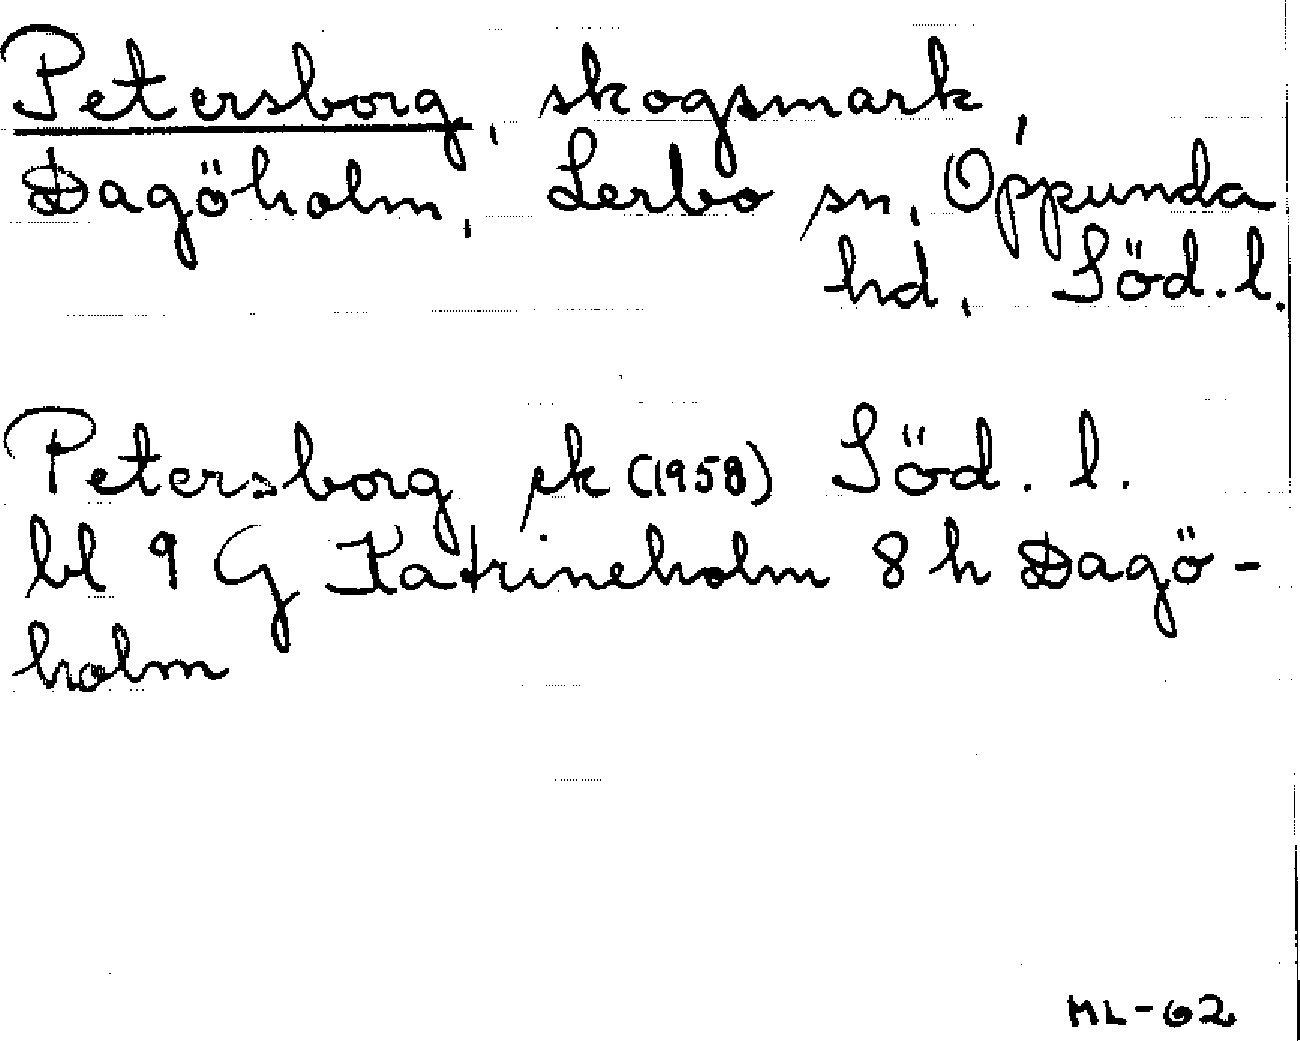 Petersborg, skogsmark,
Dagöholm, Lerbo sn, Oppunda
hd, Söd. l.
Petersborg sk (1958) Söd. l.
bl 9 G Katrineholm 8 h Dagö-
holm
ML-62